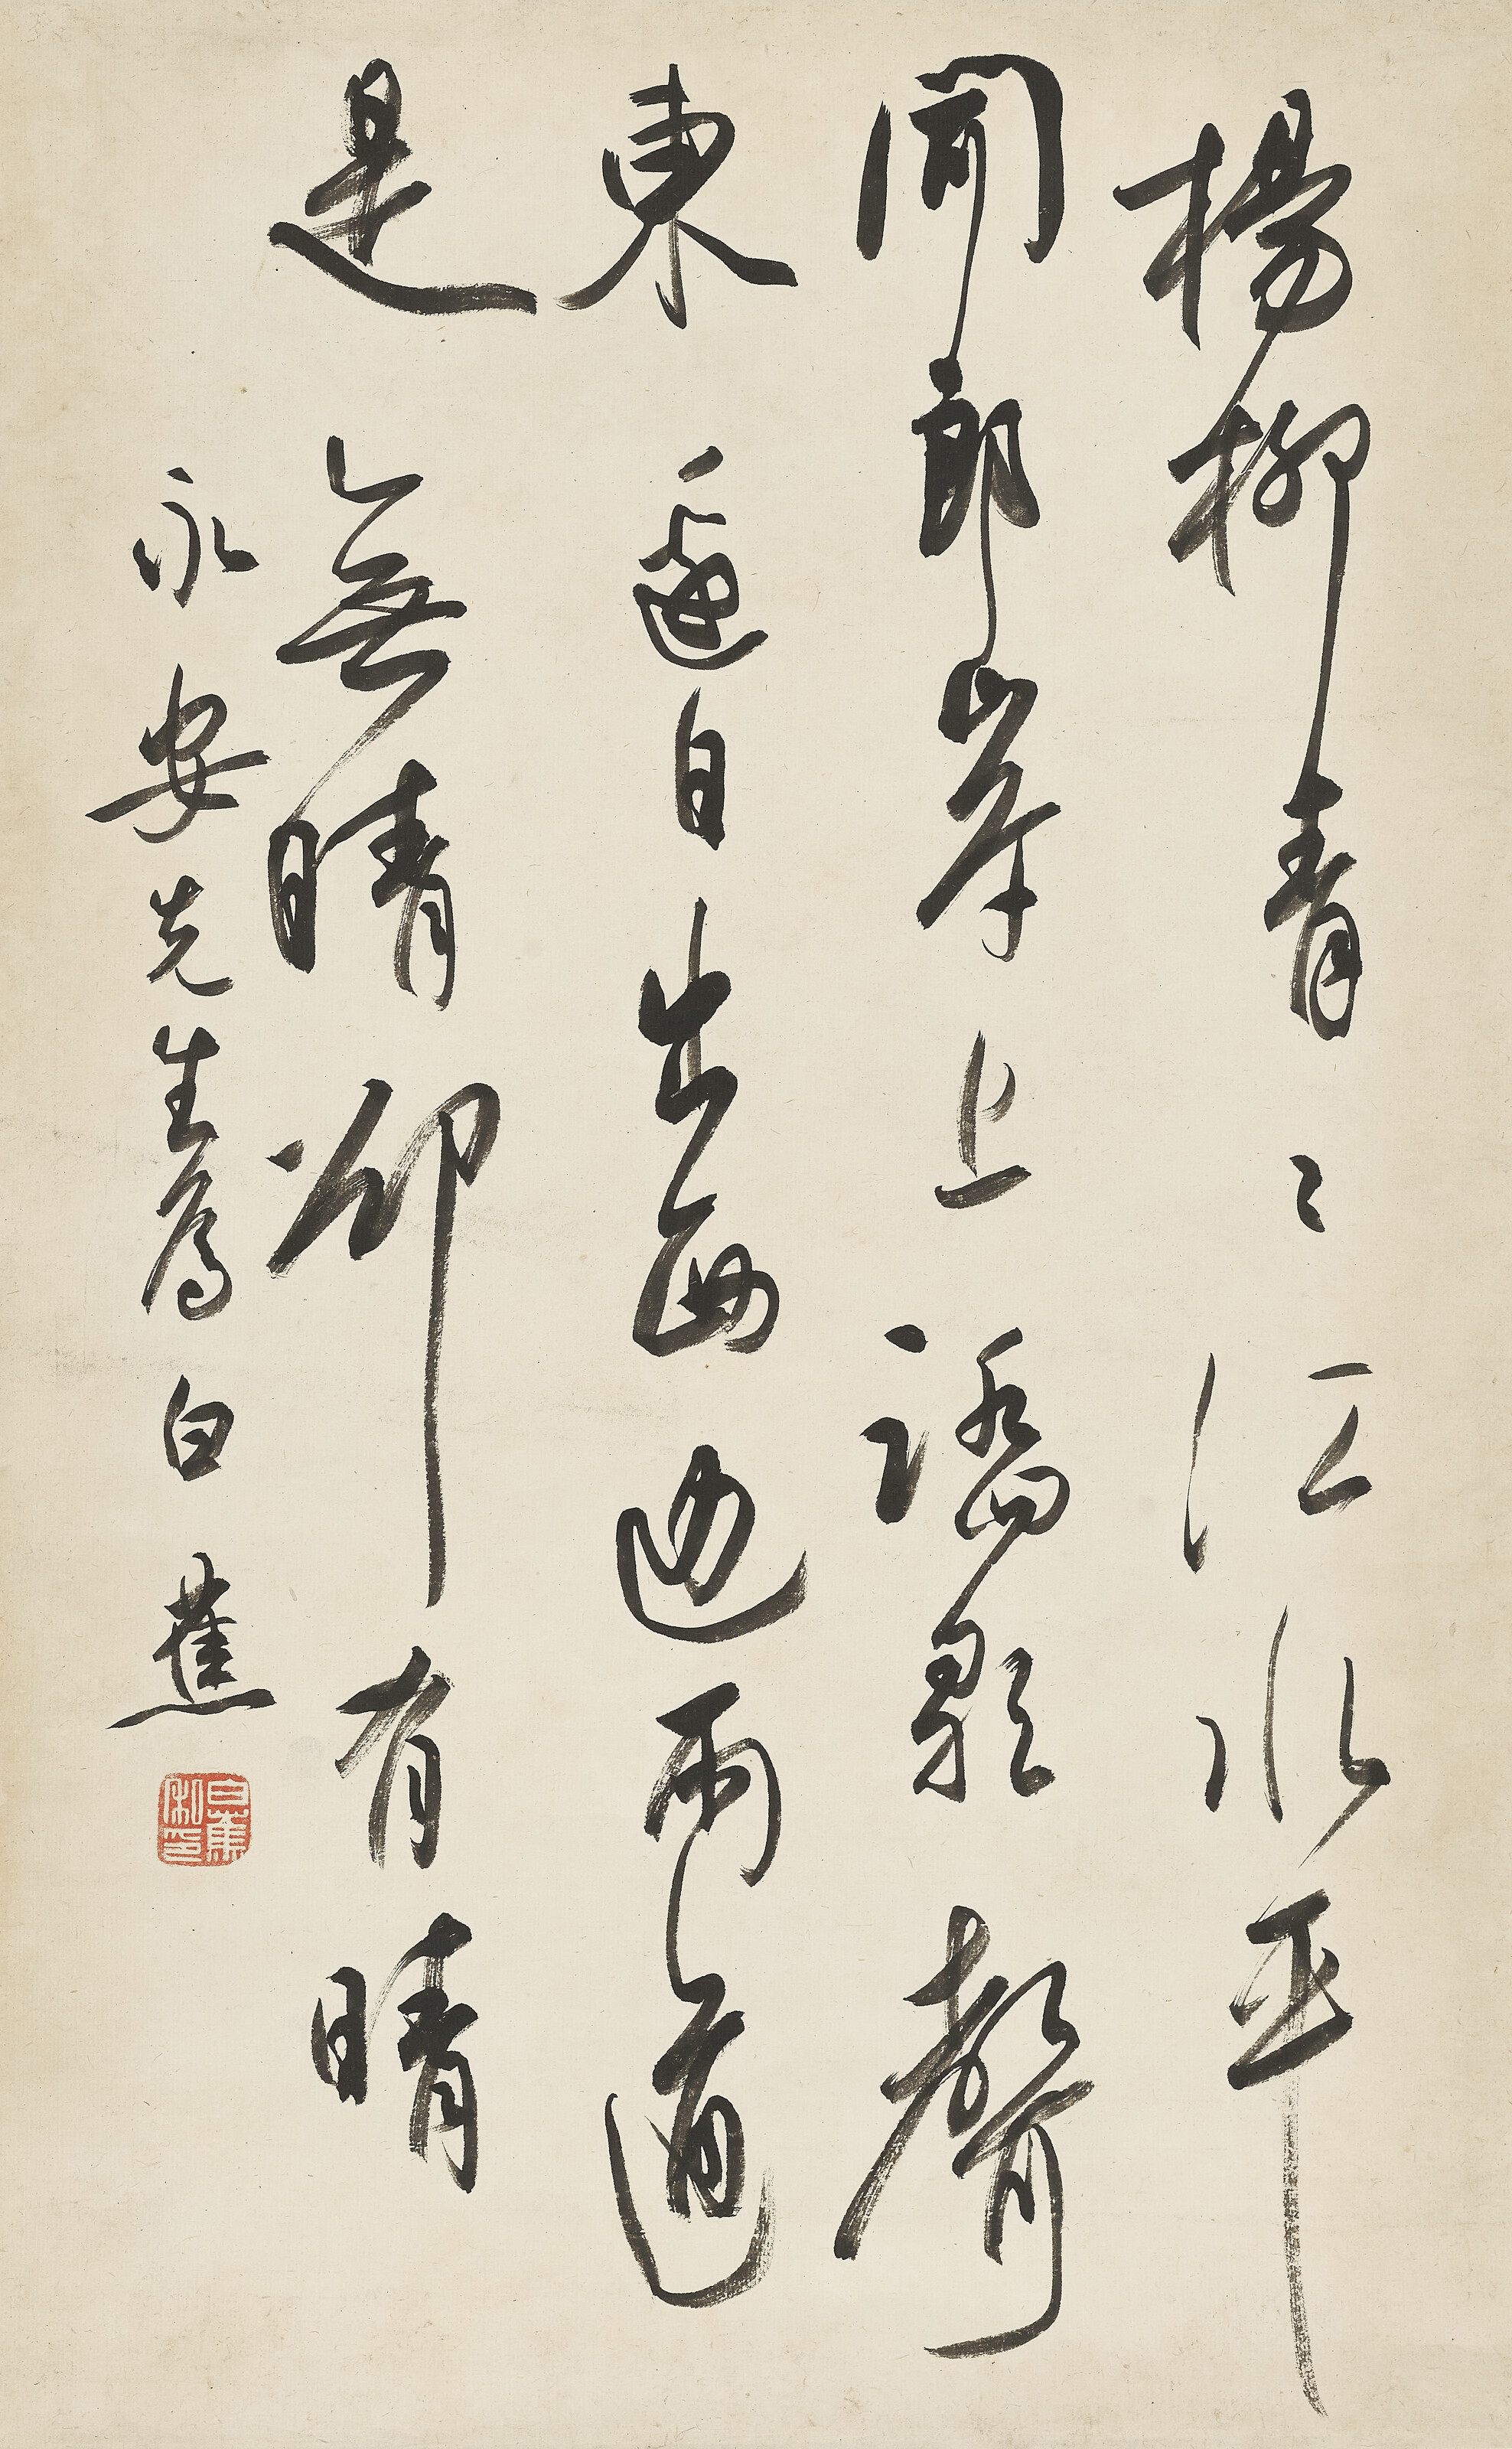 楊柳青〻江水平
聞郎岸上踏歌聲
東邊日出西邊雨道
是無晴卻有晴
永安先生屬 白蕉
白蕉私印